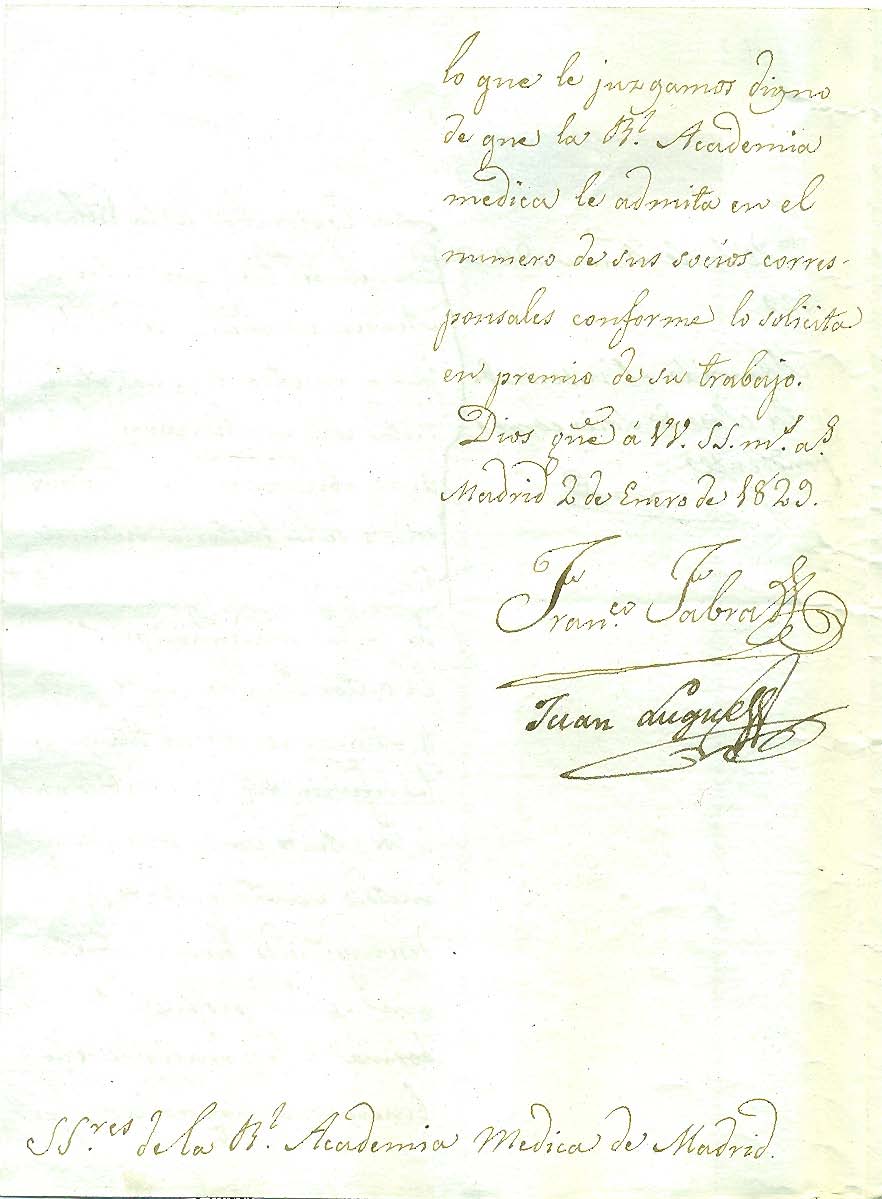 lo que le juzgamos digno
de que la Rl. Academia
medica le admita en el
numero de sus socios corres-
ponsales conforme lo solicita
en premio de su trabajo.
Dios gue á VV. SS. ms. as.
Madrid 2 de Enero de 1829.
Franco. Fabra
Juan Luque
SS.res de la Rl. Academia Medica de Madrid.